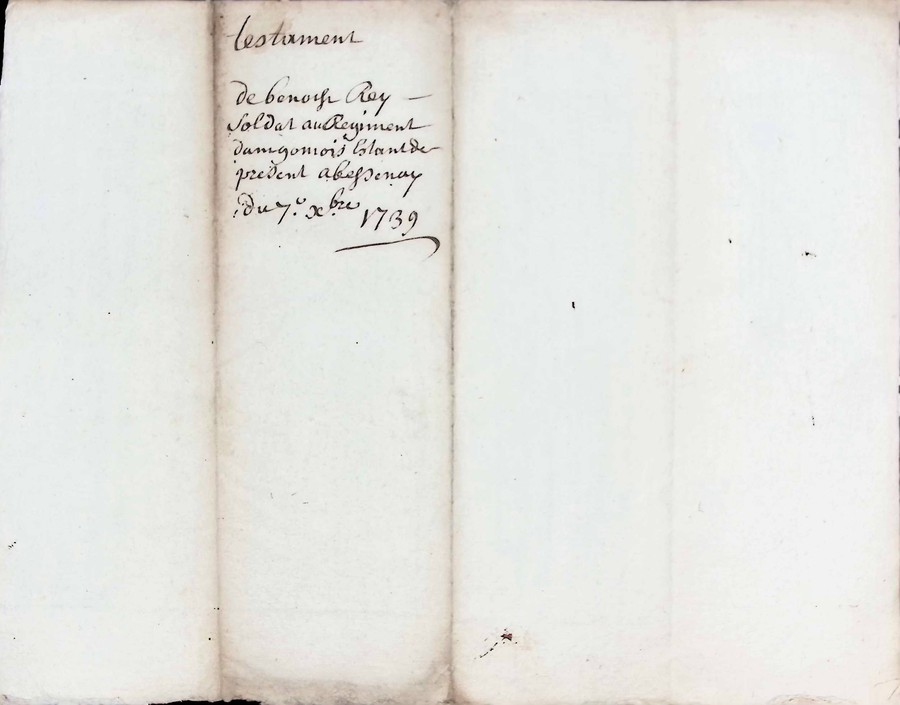 testament
de benoist Rey —
soldat au Regiment
dangomois estant de
present a bessenay
du 7.e xbre 1739